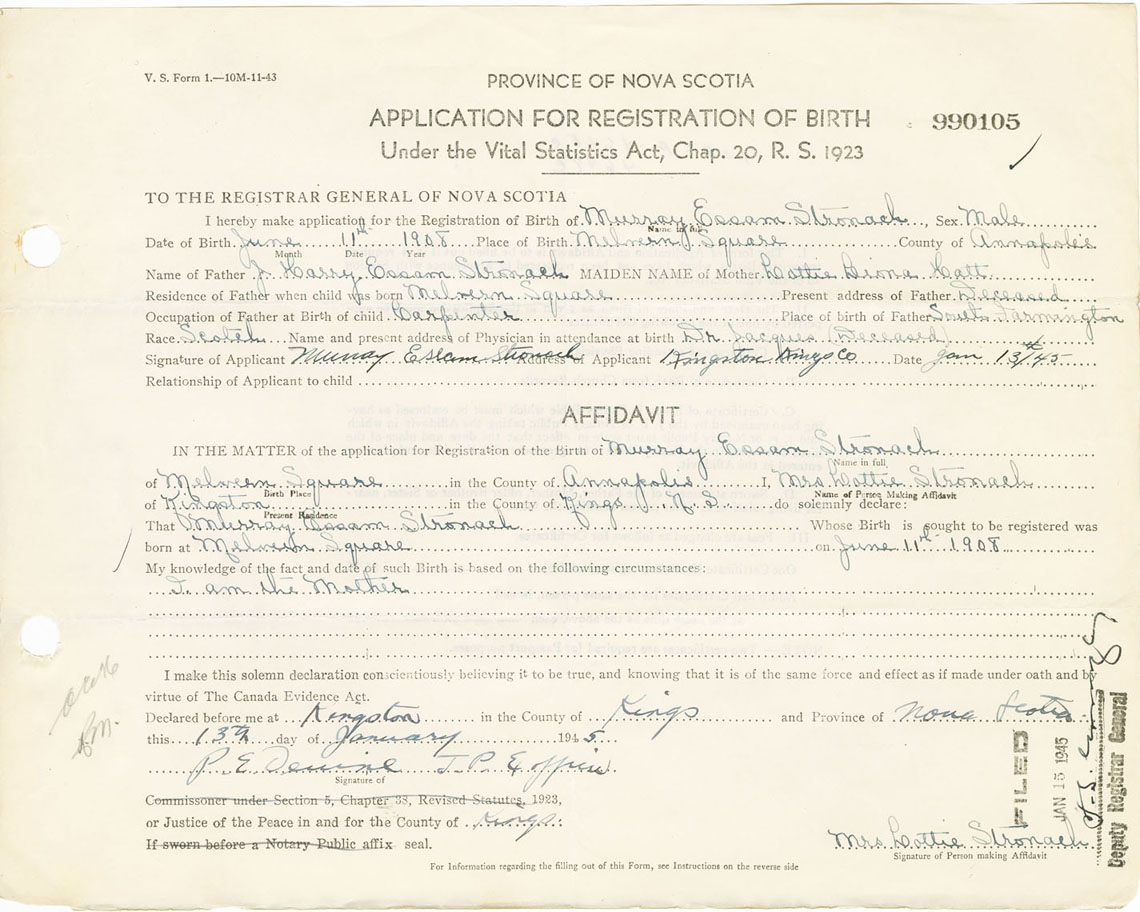 V. S. Form 1.—10M-11-43
PROVINCE OF NOVA SCOTIA
APPLICATION FOR REGISTRATION OF BIRTH 990105
Under the Vital Statistics Act, Chap. 20, R. S. 1923
TO THE REGISTRAR GENERAL OF NOVA SCOTIA
I hereby make application for the Registration of Birth of Murray Essam Stronach, Sex Male
Name in full
Date of Birth June 11th 1908 Place of Birth Melvern Square County of Annapolis
Month Date Year
Name of Father J. Harry Essam Stronach MAIDEN NAME of Mother Lottie Hatt
Residence of Father when child was born Melvern Square Present address of Father Deceased
Occupation of Father at Birth of child Carpenter Place of birth of Father South Farmington
Race Scotch Name and present address of Physician in attendance at birth Dr. Jacques (Deceased)
Signature of Applicant Murray Essam Stronach Address of Applicant Kingston Kings Co Date Jan 13th/45
Relationship of Applicant to child
AFFIDAVIT
IN THE MATTER of the application for Registration of the Birth of Murray Essam Stronach
Name in full
of Melvern Square in the County of Annapolis I, Mrs Lottie Stronach
Birth Place Name of Person Making Affidavit
of Kingston in the County of Kings N. S. do solemnly declare:
Present Residence
That Murray Essam Stronach Whose Birth is sought to be registered was
born at Melvern Square on June 11th 1908
My knowledge of the fact and date of such Birth is based on the following circumstances:
I am the Mother
I make this solemn declaration conscientiously believing it to be true, and knowing that it is of the same force and effect as if made under oath and by
virtue of The Canada Evidence Act.
Declared before me at Kingston in the County of Kings and Province of Nova Scotia
this 13th day of January 1945.
P. E. J. P.
Signature of
Commissioner under Section 5, Chapter 33, Revised Statutes, 1923,
or Justice of the Peace in and for the County of Kings
If sworn before a Notary Public affix seal.
Mrs Lottie Stronach
Signature of Person making Affidavit
For Information regarding the filling out of this Form, see Instructions on the reverse side
FILED
JAN 15 1945
Deputy Registrar General